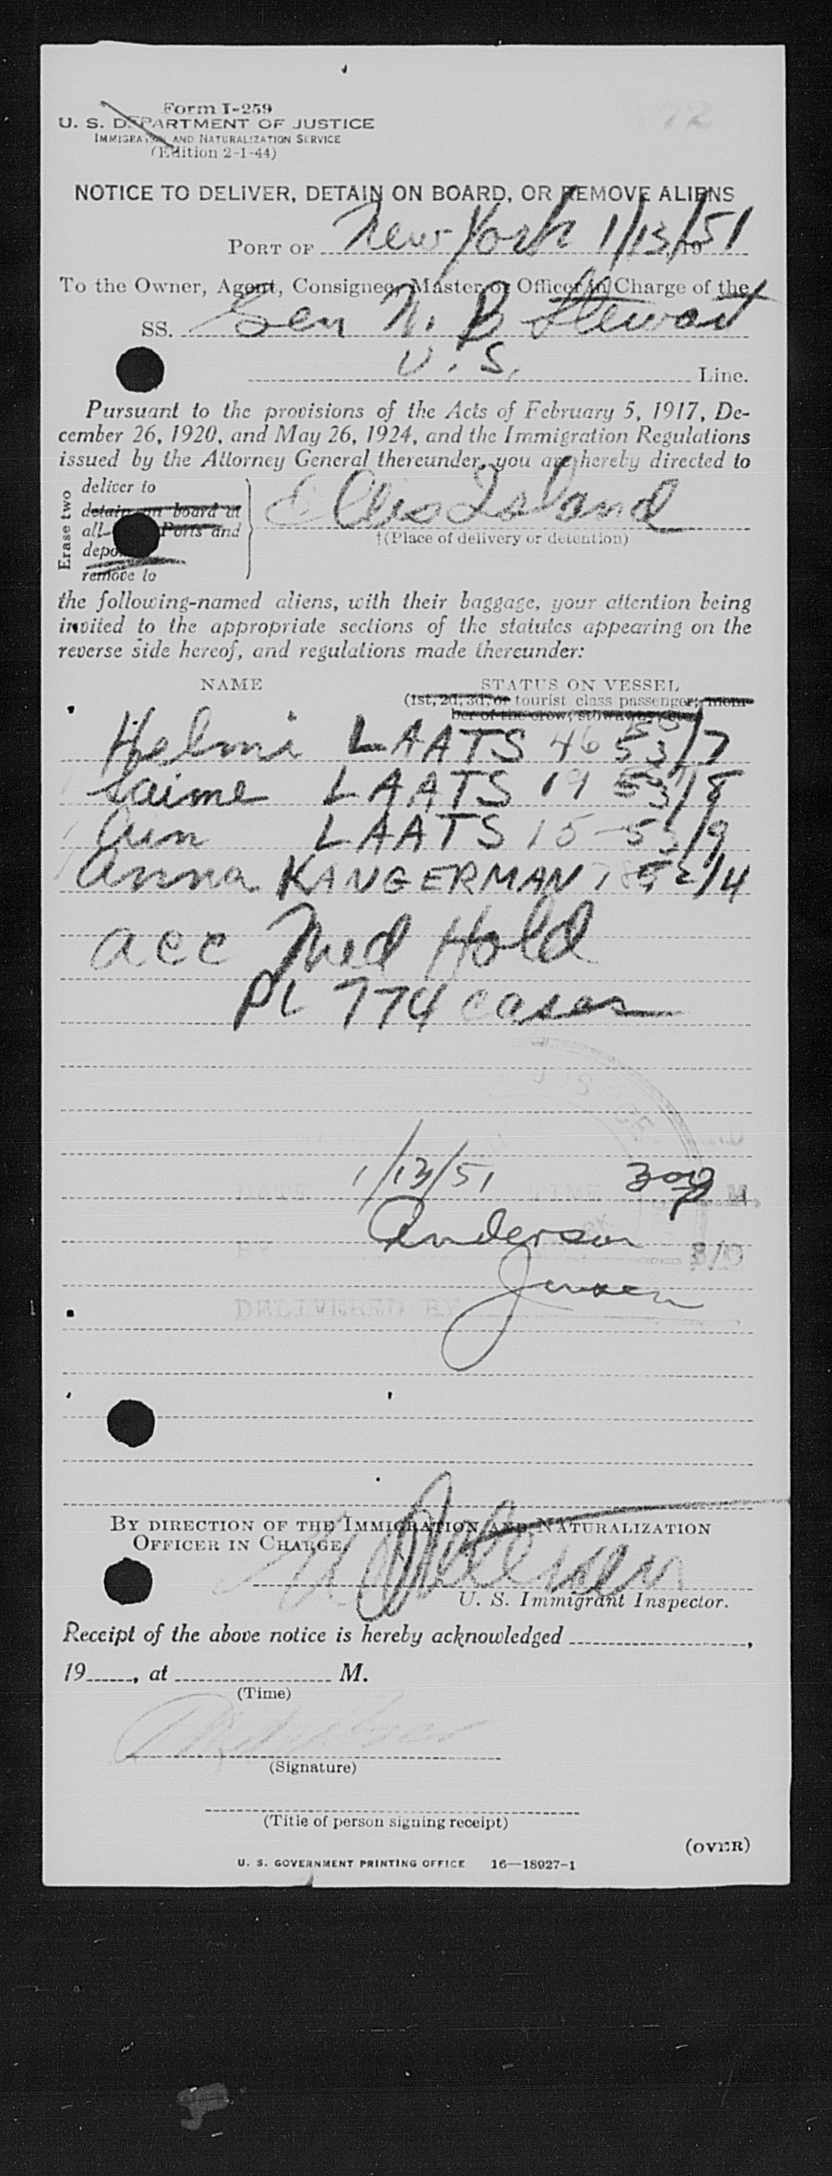 Form I-259
U. S. DEPARTMENT OF JUSTICE
IMMIGRATION AND NATURALIZATION SERVICE
(Edition 2-1-44)
NOTICE TO DELIVER, DETAIN ON BOARD, OR REMOVE ALIENS
PORT OF New York 1/13/51
To the Owner, Agent, Consignee, Master or Officer in Charge of the
SS. Gen M. B Stewart
U. S. Line.
Pursuant to the provisions of the Acts of February 5, 1917, De-
cember 26, 1920, and May 26, 1924, and the Immigration Regulations
issued by the Attorney General thereunder, you are hereby directed to
Erase two
deliver to
detain on board at
all Ports and
remove to
Ellis Island
†(Place of delivery or detention)
the following-named aliens, with their baggage, your attention being
invited to the appropriate sections of the statutes appearing on the
reverse side hereof, and regulations made thereunder:
NAME STATUS ON VESSEL
(1st, 2d, 3d, or tourist class passenger; mem-
ber of the crew; stowaway;
Helmi LAATS 46 53/7
Laime LAATS 19 53/8
LAATS 15 53/9
Anna KANGERMAN 78 52/4
acc Med Hold
PL 774 cases
1/13/51 300 P M.
Anderson
Jensen
DELIVERED BY
BY DIRECTION OF THE IMMIGRATION AND NATURALIZATION
OFFICER IN CHARGE.
U. S. Immigrant Inspector.
Receipt of the above notice is hereby acknowledged
19 , at M.
(Time)
(Signature)
(Title of person signing receipt)
(OVER)
U. S. GOVERNMENT PRINTING OFFICE 16—18927-1